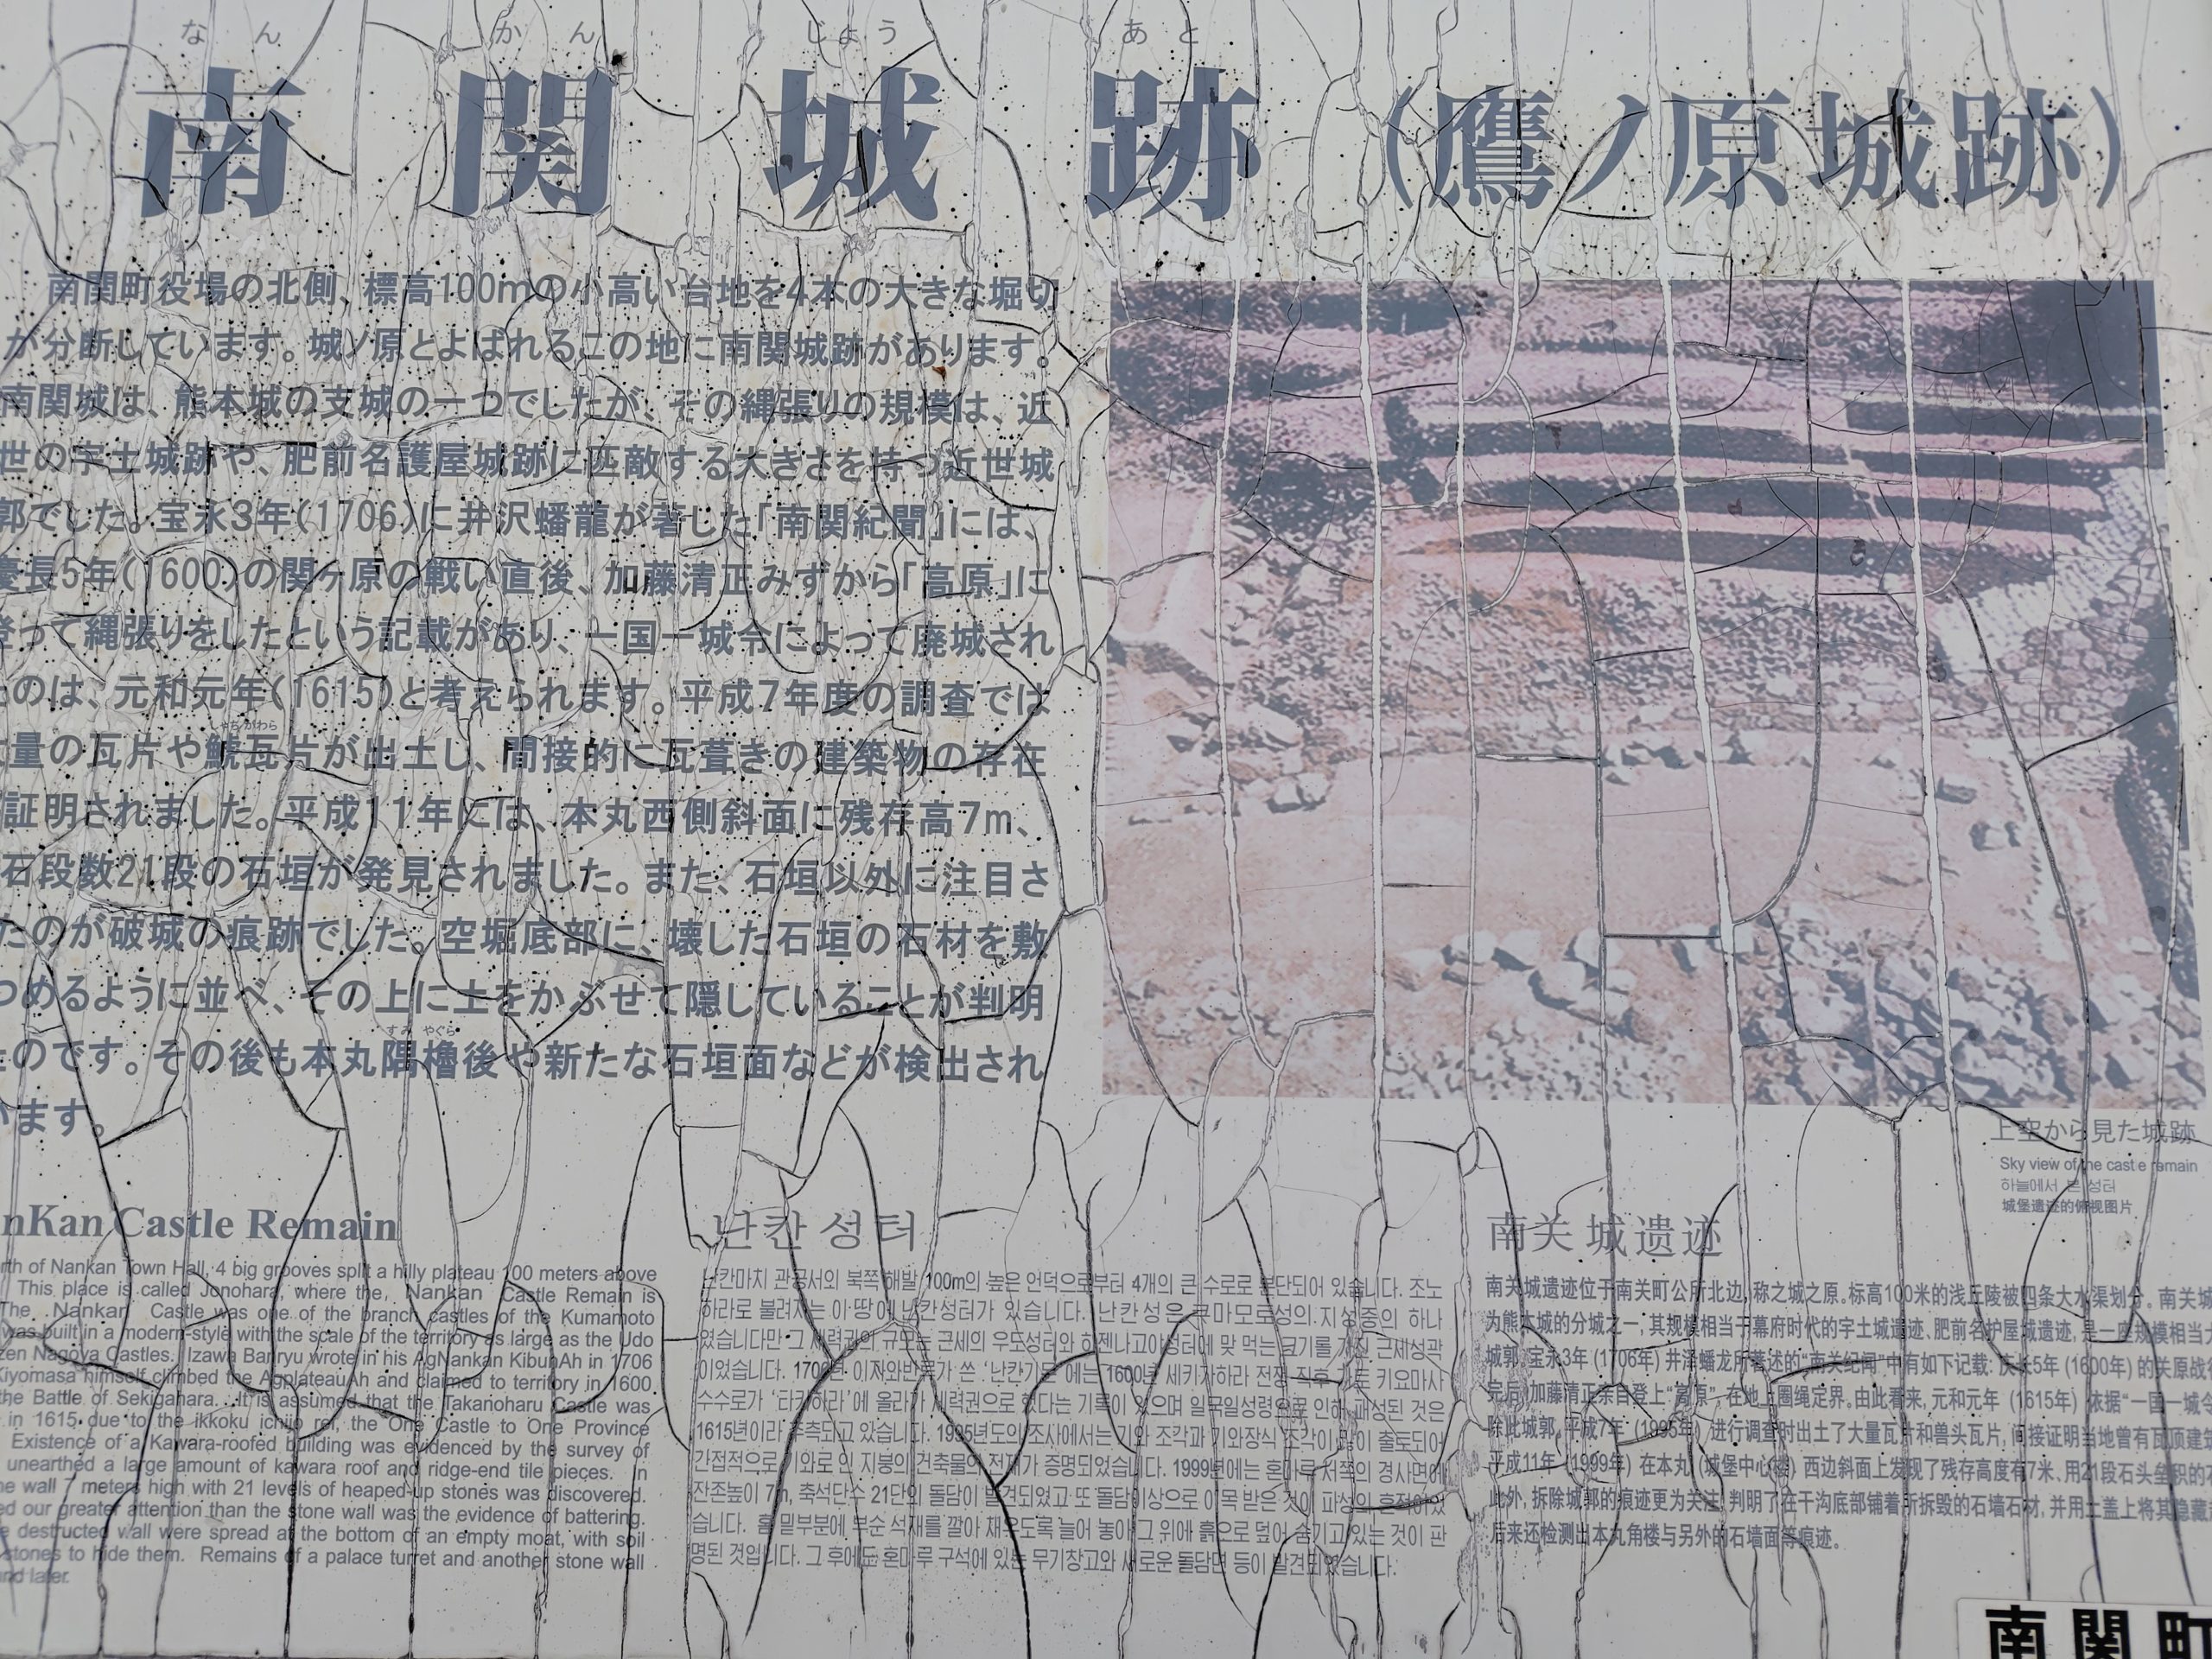 なん かん じょう あと
南関城跡(鷹ノ原城跡)
南関町役場の北側、標高100mの小高い台地を4本の大きな堀切
が分断しています。城ノ原とよばれるこの地に南関城跡があります。
南関城は、熊本城の支城の一つでしたが、その縄張りの規模は、近
世の宇土城跡や、肥前名護屋城跡に匹敵する大きさを持つ近世城
郭でした。宝永3年(1706)に井沢蟠龍が著した「南関紀聞」には、
慶長5年(1600)の関ヶ原の戦い直後、加藤清正みずから「高原」に
登って縄張りをしたという記載があり、一国一城令によって廃城され
のは、元和元年(1615)と考えられます。平成7年度の調査では
しゃちがわら
量の瓦片や鯱瓦片が出土し、間接的に瓦葺きの建築物の存在
証明されました。平成11年には、本丸西側斜面に残存高7m、
石段数21段の石垣が発見されました。また、石垣以外に注目さ
たのが破城の痕跡でした。空堀底部に、壊した石垣の石材を敷
つめるように並べ、その上に土をかぶせて隠していることが判明
すみ やぐら
のです。その後も本丸隅櫓後や新たな石垣面などが検出され
います。
上空から見た城跡
Sky view of the castle remain
하늘에서 본 성터
城堡遗迹的俯视图片
nKan Castle Remain
rth of Nankan Town Hall, 4 big grooves split a hilly plateau 100 meters above
This place is called Jonohara, where the, Nankan Castle Remain is
The Nankan Castle was one of the branch castles of the Kumamoto
was built in a modern-style with the scale of the territory as large as the Udo
zen Nagoya Castles. Izawa Banryu wrote in his AgNankan KibunAh in 1706
Kiyomasa himself climbed the AgplateauAh and claimed to territory in 1600
the Battle of Sekigahara. It is assumed that the Takanoharu Castle was
in 1615 due to the ikkoku ichijo rei, the One Castle to One Province
Existence of a Kawara-roofed building was evidenced by the survey of
unearthed a large amount of kawara roof and ridge-end tile pieces. In
ne wall 7 meters high with 21 levels of heaped-up stones was discovered.
ed our greater attention than the stone wall was the evidence of battering.
e destructed wall were spread at the bottom of an empty moat, with soil
stones to hide them. Remains of a palace turret and another stone wall
and later.
난칸 성터
난칸마치 관공서의 북쪽 해발 100m의 높은 언덕으로부터 4개의 큰 수로로 분단되어 있습니다. 조노
하라로 불려지는 이 땅에 난칸성터가 있습니다. 난칸성은 쿠마모토성의 지성중의 하나
였습니다만 그 세력권의 규모는 근세의 우도성터와 히젠나고야성터에 맞 먹는 크기를 가진 근세성곽
이었습니다. 1706년 이자와반류가 쓴 '난칸기문'에는 1600년 세키가하라 전쟁 직후 가토 키요마사
수수로가 '타카하라'에 올라가 세력권으로 했다는 기록이 있으며 일국일성령으로 인해 폐성된 것은
1615년이라 추측되고 있습니다. 1995년도의 조사에서는 기와 조각과 기와장식 조각이 많이 출토되어
간접적으로 기와로 인 지붕의 건축물의 존재가 증명되었습니다. 1999년에는 혼마루 서쪽의 경사면에
잔존높이 7m, 축석단수 21단의 돌담이 발견되었고 또 돌담이상으로 이목 받은 것이 파성의 흔적이었
습니다. 홈 밑부분에 부순 석재를 깔아 채우도록 늘어 놓아 그 위에 흙으로 덮어 숨기고 있는 것이 판
명된 것입니다. 그 후에도 혼마루 구석에 있는 무기창고와 새로운 돌담면 등이 발견되었습니다.
南关城遗迹
南关城遗迹位于南关町公所北边,称之城之原。标高100米的浅丘陵被四条大水渠划分。南关城
为熊本城的分城之一,其规模相当于幕府时代的宇土城遗迹、肥前名护屋城遗迹,是一座规模相当大
城郭。宝永3年(1706年)井泽蟠龙所著述的“南关纪闻”中有如下记载:庆长5年(1600年)的关原战役
完后,加藤清正亲自登上“高原”,在地上圈绳定界。由此看来,元和元年(1615年)依据“一国一城令
除此城郭。平成7年(1995年)进行调查时出土了大量瓦片和兽头瓦片,间接证明当地曾有瓦顶建筑
平成11年(1999年)在本丸(城堡中心楼)西边斜面上发现了残存高度有7米、用21段石头垒积的石
此外,拆除城郭的痕迹更为关注,判明了在干沟底部铺着所拆毁的石墙石材,并用土盖上将其隐藏
后来还检测出本丸角楼与另外的石墙面等痕迹。
南関町